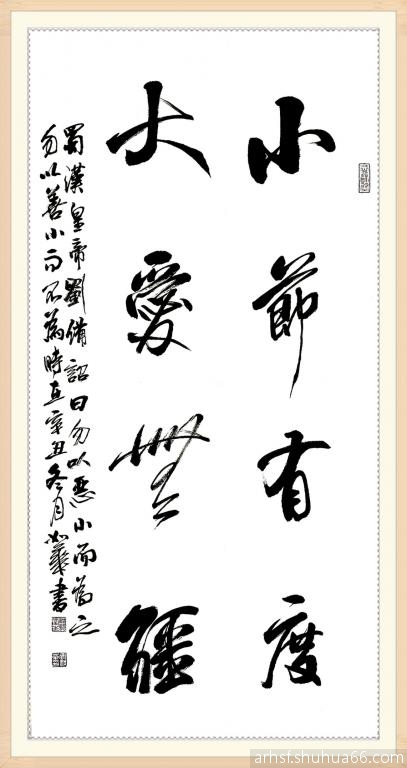 小節有度
大愛無疆
蜀漢皇帝劉備詔曰勿以惡小而為之
勿以善小而不為時在辛丑冬月
書
arhsf.shuhua66.com